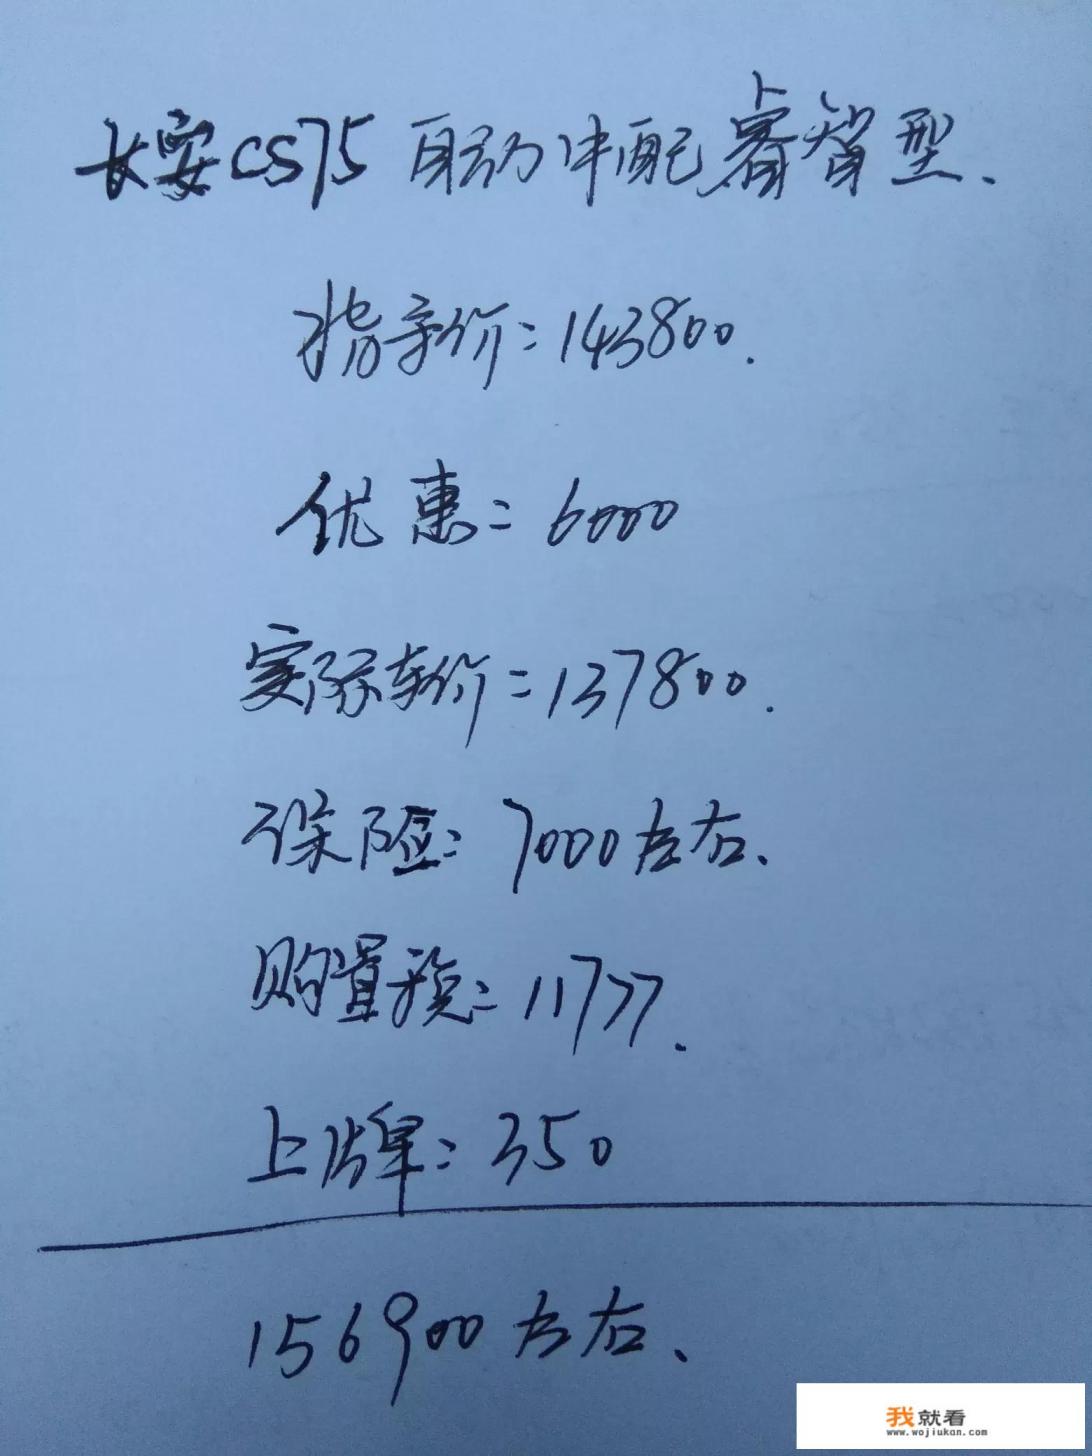 长安CS75 自动中配睿智型.
指导价=143800.
优惠=6000
实际车价=137800.
保险:7000左右.
购置税=11777.
上牌:350
156900左右.
我就看
www.wojiukan.com